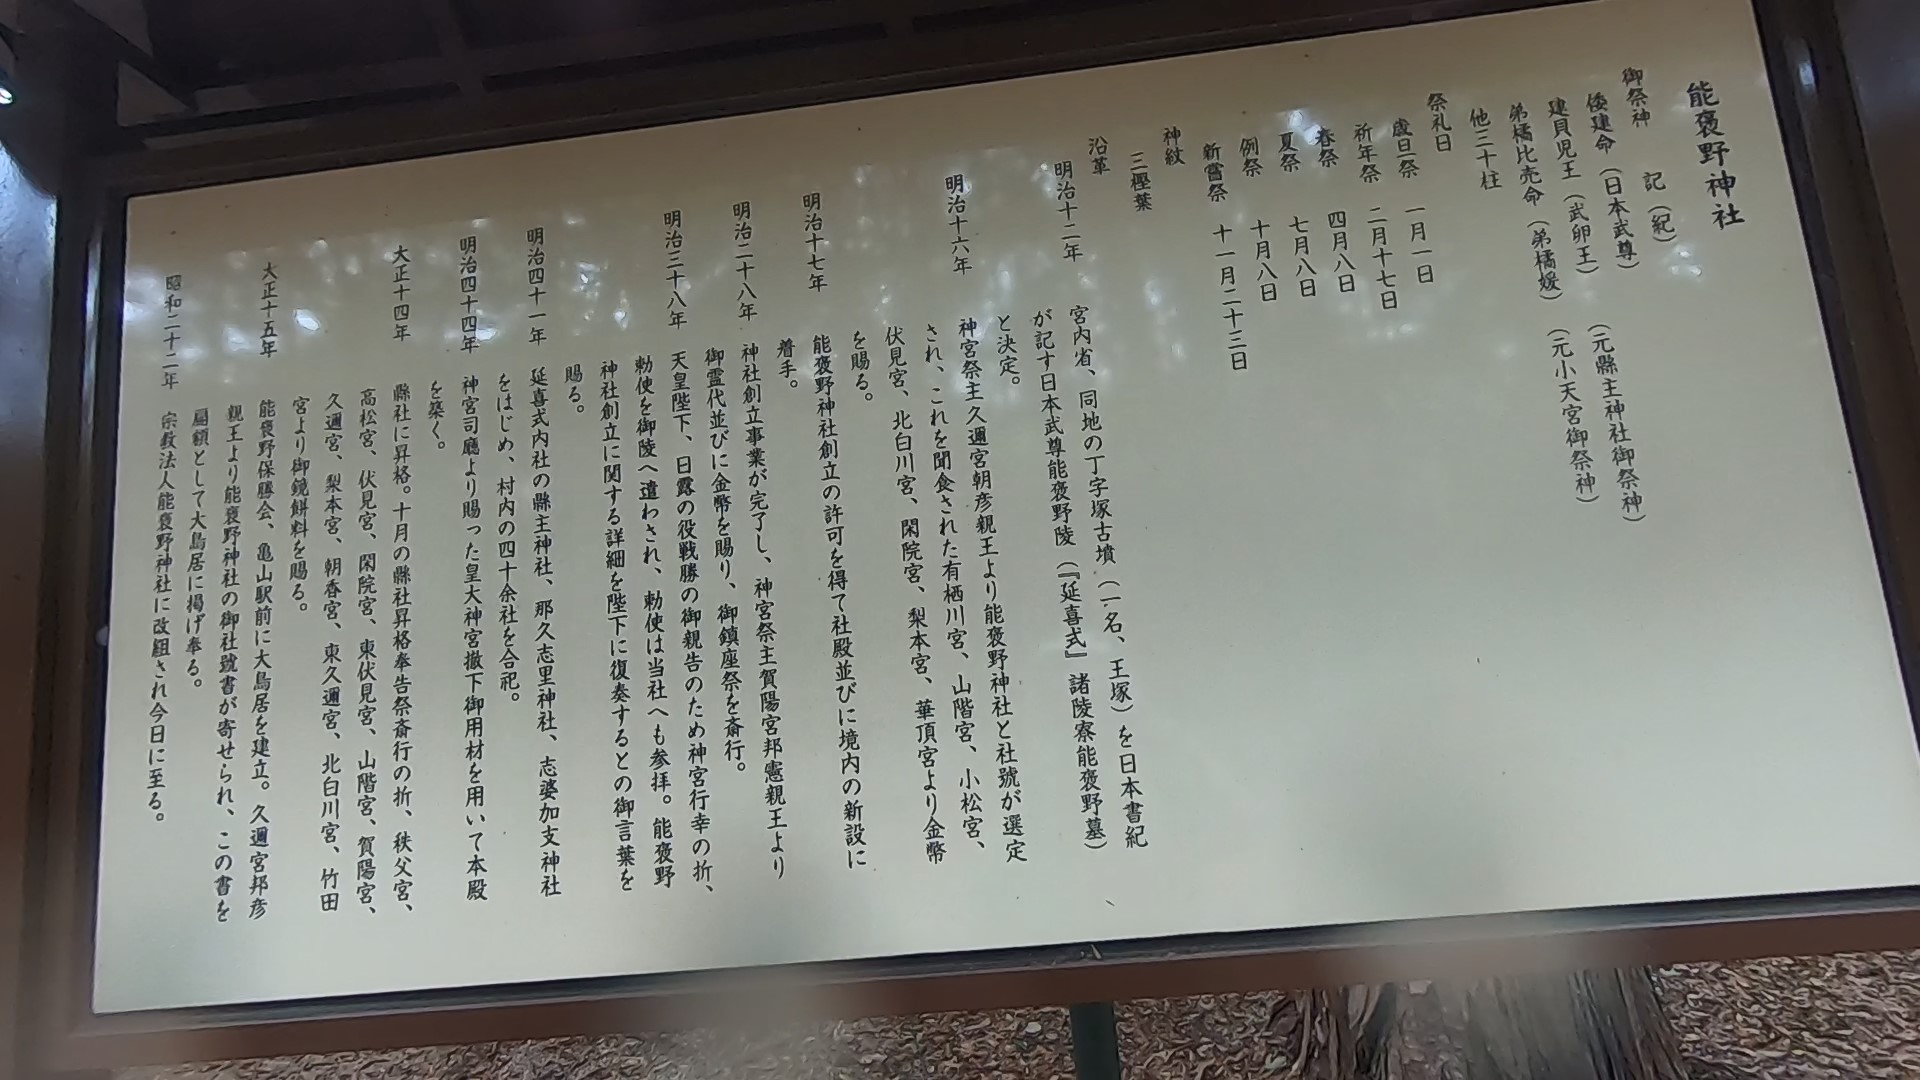 能褒野神社
御祭神　記（紀）
倭建命（日本武尊）
建貝児王（武卵王）　（元縣主神社御祭神）
弟橘比売命（弟橘媛）　（元小天宮御祭神）
他三十柱
祭礼日
歳旦祭　一月一日
祈年祭　二月十七日
春祭　四月八日
夏祭　七月八日
例祭　十月八日
新嘗祭　十一月二十三日
神紋
三樫葉
沿革
明治十二年　宮内省、同地の丁字塚古墳（一名、王塚）を日本書紀
が記す日本武尊能褒野陵（『延喜式』諸陵寮能褒野墓）
と決定。
明治十六年　神宮祭主久邇宮朝彦親王より能褒野神社と社號が選定
され、これを聞食された有栖川宮、山階宮、小松宮、
伏見宮、北白川宮、閑院宮、梨本宮、華頂宮より金幣
を賜る。
明治十七年　能褒野神社創立の許可を得て社殿並びに境内の新設に
着手。
明治二十八年　神社創立事業が完了し、神宮祭主賀陽宮邦憲親王より
御霊代並びに金幣を賜り、御鎮座祭を斎行。
明治三十八年　天皇陛下、日露の役戦勝の御親告のため神宮行幸の折、
勅使を御陵へ遣わされ、勅使は当社へも参拝。能褒野
神社創立に関する詳細を陛下に復奏するとの御言葉を
賜る。
明治四十一年　延喜式内社の縣主神社、那久志里神社、志婆加支神社
をはじめ、村内の四十余社を合祀。
明治四十四年　神宮司廳より賜った皇大神宮撤下御用材を用いて本殿
を築く。
大正十四年　縣社に昇格。十月の縣社昇格奉告祭斎行の折、秩父宮、
高松宮、伏見宮、閑院宮、東伏見宮、山階宮、賀陽宮、
久邇宮、梨本宮、朝香宮、東久邇宮、北白川宮、竹田
宮より御鏡餅料を賜る。
大正十五年　能褒野保勝会、亀山駅前に大鳥居を建立。久邇宮邦彦
親王より能褒野神社の御社號書が寄せられ、この書を
扁額として大鳥居に掲げ奉る。
昭和二十二年　宗教法人能褒野神社に改組され今日に至る。